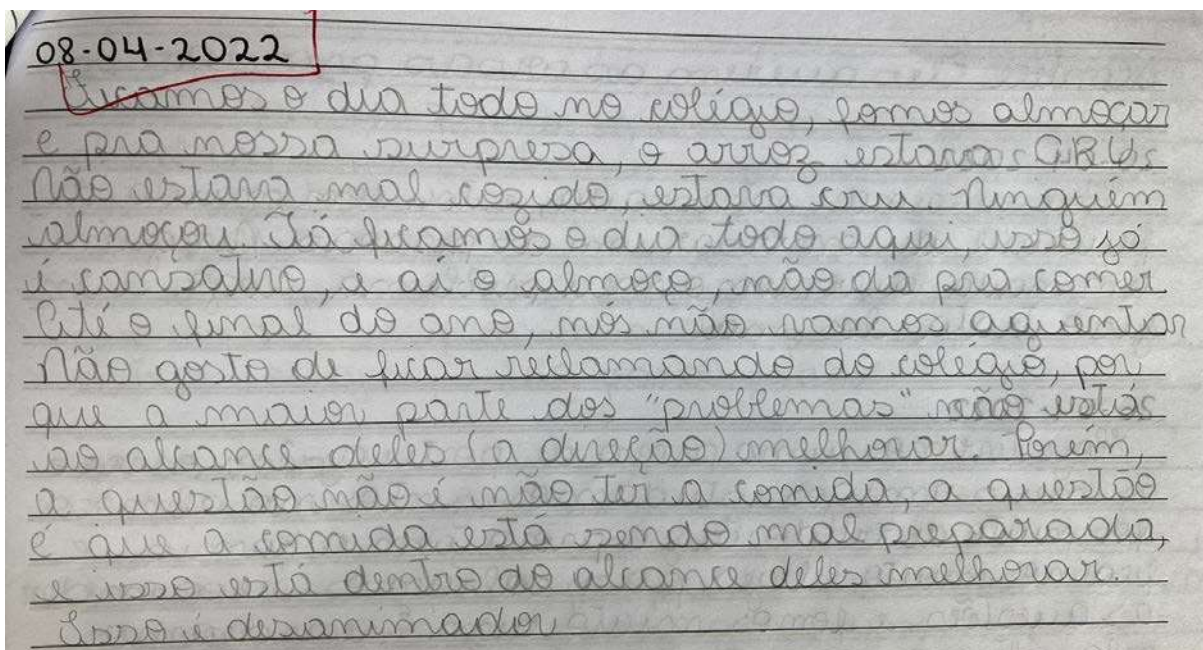 08-04-2022
Ficamos o dia todo no colégio, fomos almoçar
e pra nossa surpresa, o arroz estava CRU.
Não estava mal cozido, estava cru. Ninguém
almoçou. Já ficamos o dia todo aqui, isso já
é cansativo, e aí o almoço, não da pra comer.
Até o final do ano, nós não vamos aguentar
Não gosto de ficar reclamando do colégio, por
que a maior parte dos "problemas" não está
ao alcance deles (a direção) melhorar. Porém,
a questão não é não ter a comida, a questão
é que a comida está sendo mal preparada,
e isso está dentro do alcance deles melhorar.
Isso é desanimador